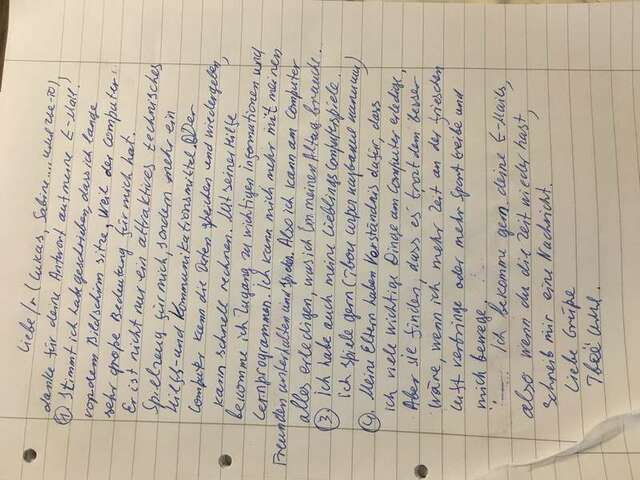 Liebe/r (Lukas, Sabine... und
danke für deine Antwort auf meine E-Mail!
Stimmt ich habe geschrieben, dass ich lange
vor dem Bildschirm sitze, weil der Computer
sehr große Bedeutung für mich hat.
Er ist nicht nur ein attraktives technisches
Spielzeug für mich, sondern mehr ein
Hilfs- und Kommunikationsmittel. Der
Computer kann die Daten speichern und wiedergeben,
kann schnell rechnen. Mit seiner Hilfe
bekomme ich Zugang zu wichtigen informationen und
Lernprogrammen. Ich kann mich mehr mit meinen
Freunden unterhalten und Also ich kann am Computer
alles erledigen, was ich im meinen Alltag brauche.
③ Ich habe auch meine Lieblings Computerspiele.
Ich spiele gern
Meine Eltern haben Verständnis dafür, dass
ich viele wichtige Dinge am Computer erledige,
Aber sie finden, dass es trotzdem besser
wäre wenn ich mehr Zeit an der frischen
Luft verbringe oder mehr Sport treibe und
mich bewege.
Ich bekomme gern deine E-Mails,
also wenn du die Zeit wieder hast,
schreib mir eine Nachricht.
Liebe Grüße